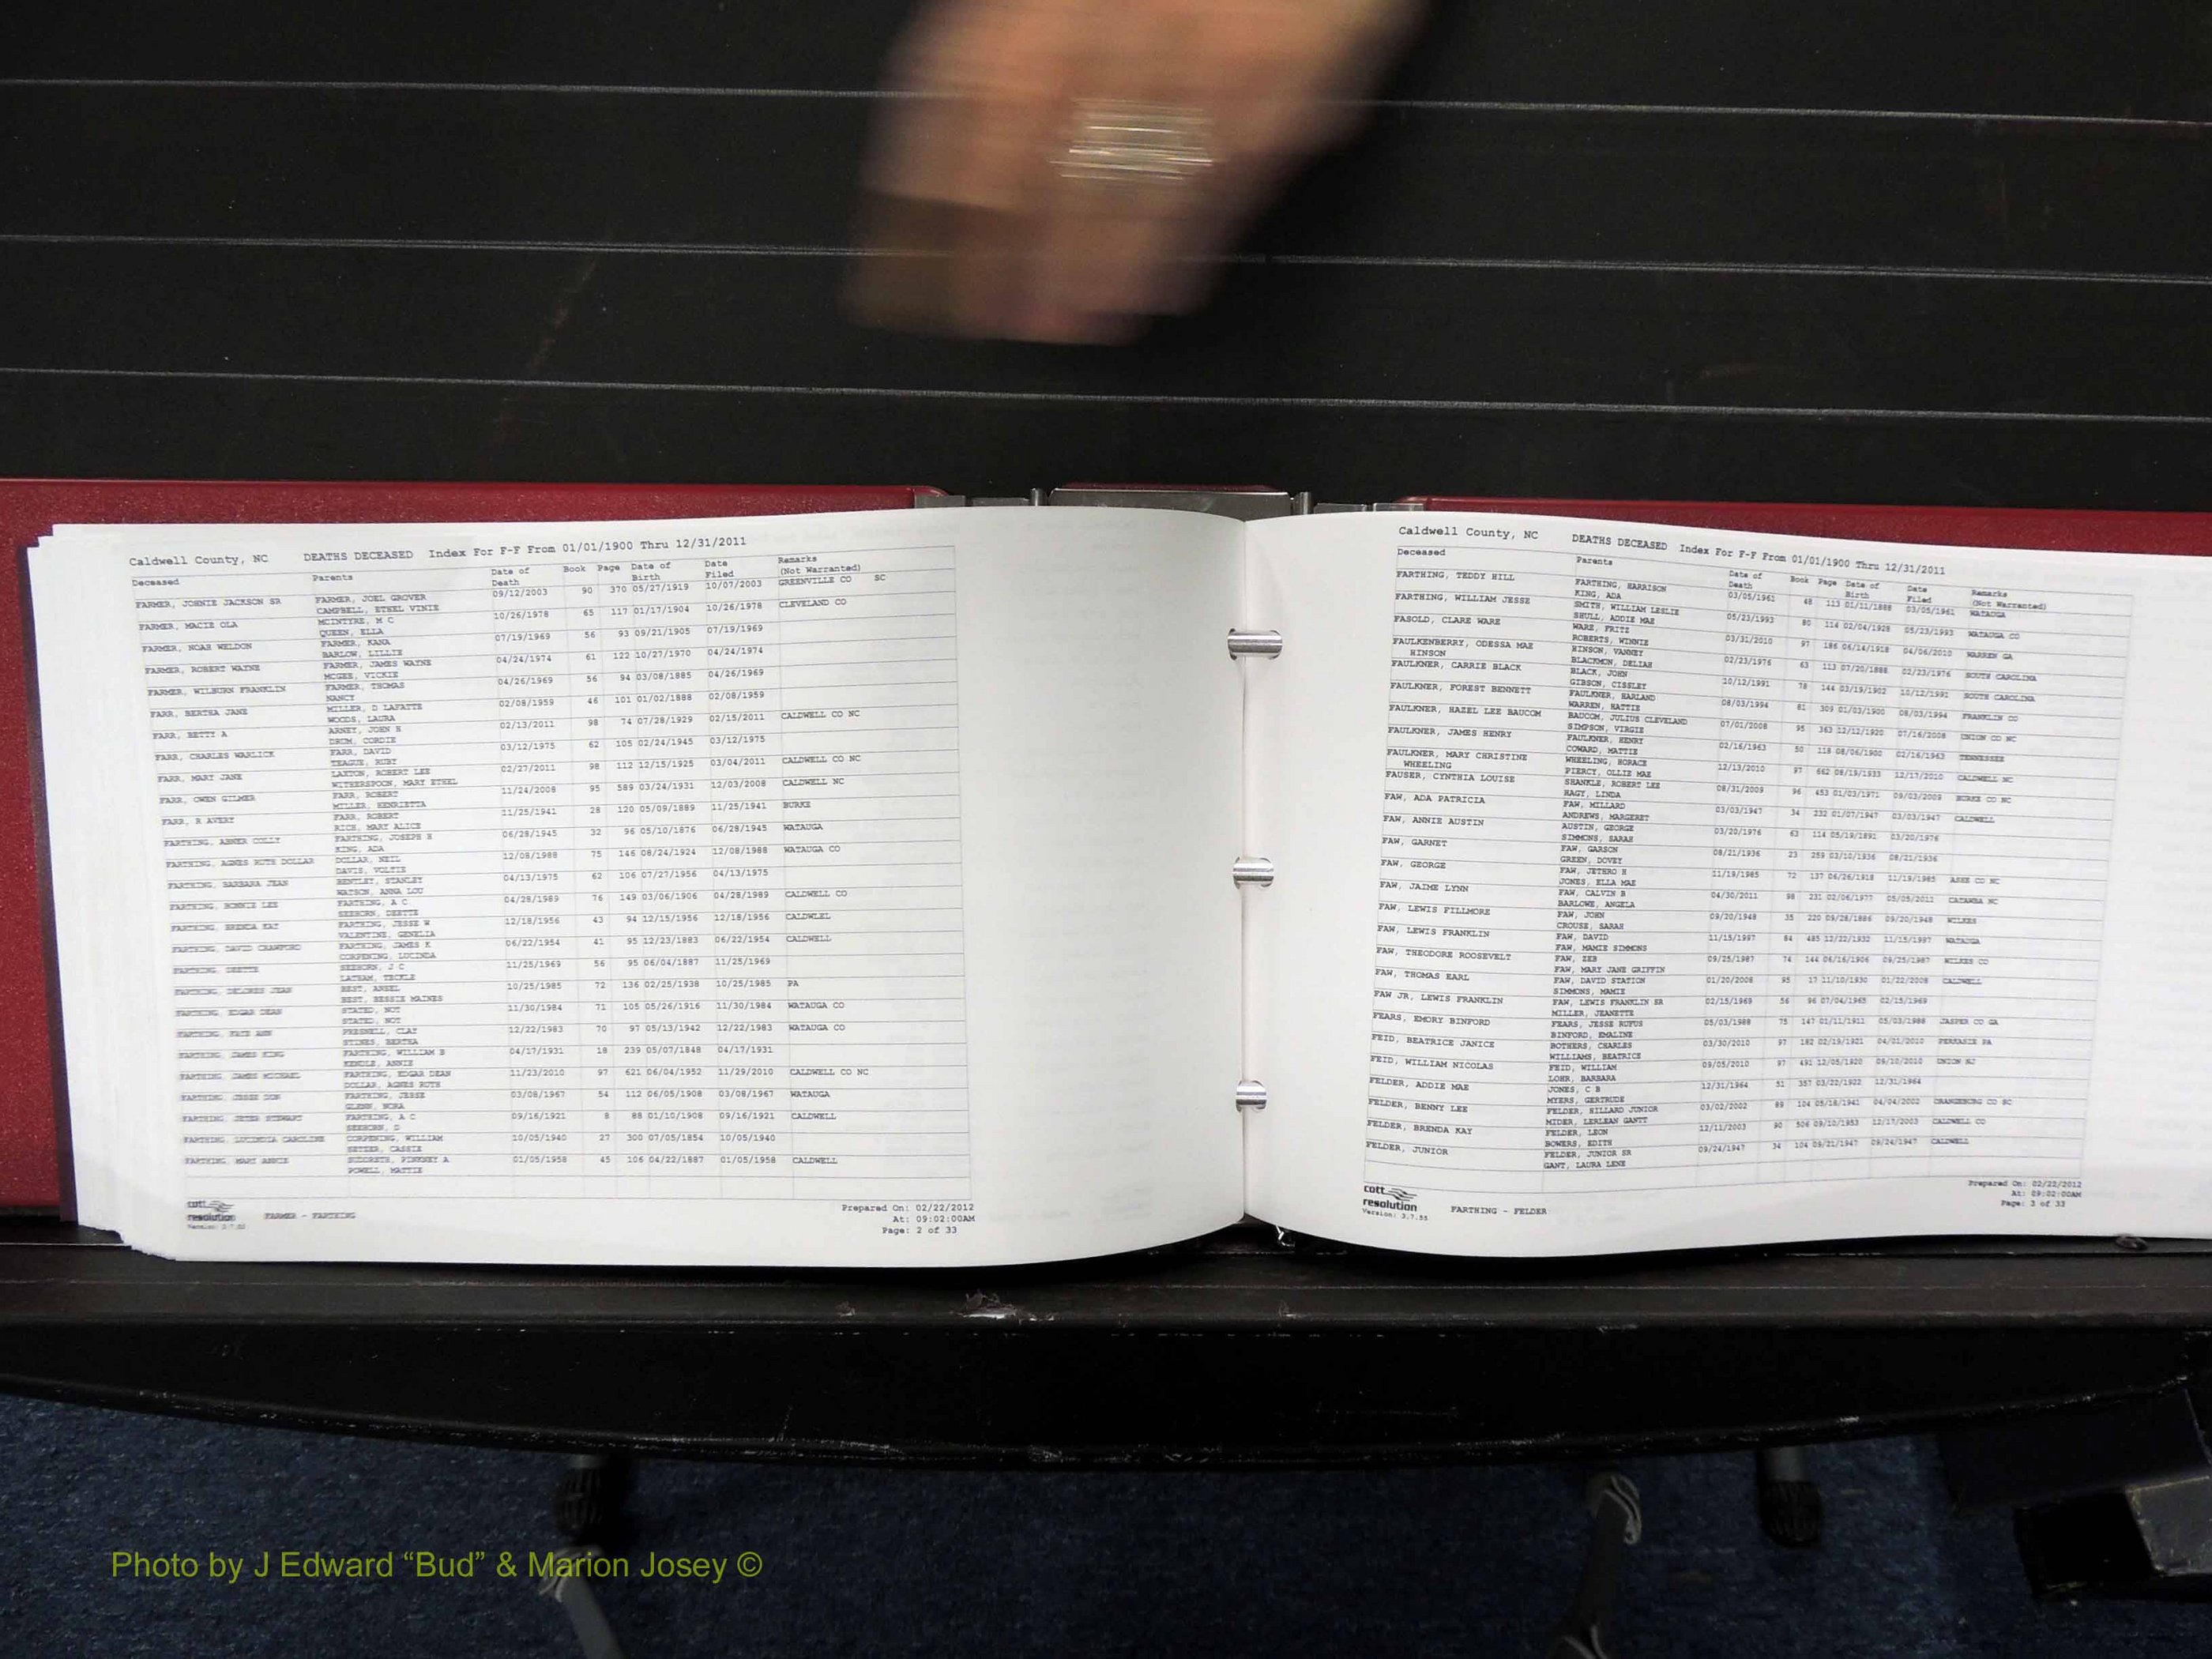 Caldwell County, NC DEATHS DECEASED Index For F-F From 01/01/1900 Thru 12/31/2011
Deceased Parents Date of Death Book Page Date of Birth Date Filed Remarks (Not Warranted)
FARMER, JOHNIE JACKSON SR FARMER, JOEL GROVER 09/12/2003 90 370 05/27/1919 10/07/2003 GREENVILLE CO SC
CAMPBELL, ETHEL VINIE
FARMER, MACIE OLA MCINTYRE, M C 10/26/1978 65 117 01/17/1904 10/26/1978 CLEVELAND CO
QUEEN, ELLA
FARMER, NOAH WELDON FARMER, KANA 07/19/1969 56 93 09/21/1905 07/19/1969
BARLOW, LILLIE
FARMER, ROBERT WAYNE FARMER, JAMES WAYNE 04/24/1974 61 122 10/27/1970 04/24/1974
MCGEE, VICKIE
FARMER, WILBURN FRANKLIN FARMER, THOMAS 04/26/1969 56 94 03/08/1885 04/26/1969
NANCY
FARR, BERTHA JANE MILLER, D LAFATTE 02/08/1959 46 101 01/02/1888 02/08/1959
WOODS, LAURA
FARR, BETTY A ARNEY, JOHN H 02/13/2011 98 74 07/28/1929 02/15/2011 CALDWELL CO NC
DRUM, CORDIE
FARR, CHARLES WARLICK FARR, DAVID 03/12/1975 62 105 02/24/1945 03/12/1975
TEAGUE, RUBY
FARR, MARY JANE LAXTON, ROBERT LEE 02/27/2011 98 112 12/15/1925 03/04/2011 CALDWELL CO NC
WITHERSPOON, MARY ETHEL
FARR, OWEN GILMER FARR, ROBERT 11/24/2008 95 589 03/24/1931 12/03/2008 CALDWELL NC
MILLER, HENRIETTA
FARR, R AVERY FARR, ROBERT 11/25/1941 28 120 05/09/1889 11/25/1941 BURKE
RICH, MARY ALICE
FARTHING, ABNER COLLY FARTHING, JOSEPH H 06/28/1945 32 96 05/10/1876 06/28/1945 WATAUGA
KING, ADA
FARTHING, AGNES RUTH DOLLAR DOLLAR, NEIL 12/08/1988 75 146 08/24/1924 12/08/1988 WATAUGA CO
DAVIS, VOLTIE
FARTHING, BARBARA JEAN BENTLEY, STANLEY 04/13/1975 62 106 07/27/1956 04/13/1975
WATSON, ANNA LOU
FARTHING, BONNIE LEE FARTHING, A C 04/28/1989 76 149 03/06/1906 04/28/1989 CALDWELL CO
SEEHORN, DEETTE
FARTHING, BRENDA KAY FARTHING, JESSE W 12/18/1956 43 94 12/15/1956 12/18/1956 CALDWLEL
VALENTINE, GENELIA
FARTHING, DAVID CRAWFORD FARTHING, JAMES K 06/22/1954 41 95 12/23/1883 06/22/1954 CALDWELL
CORPENING, LUCINDA
FARTHING, DEETTE SEEHORN, J C 11/25/1969 56 95 06/04/1887 11/25/1969
LATHAM, TECKLE
FARTHING, DELORES JEAN BEST, ANSEL 10/25/1985 72 136 02/25/1938 10/25/1985 PA
BEST, BESSIE MAINES
FARTHING, EDGAR DEAN STATED, NOT 11/30/1984 71 105 05/26/1916 11/30/1984 WATAUGA CO
STATED, NOT
FARTHING, FAYE ANN PRESNELL, CLAY 12/22/1983 70 97 05/13/1942 12/22/1983 WATAUGA CO
STINES, BERTHA
FARTHING, JAMES KING FARTHING, WILLIAM B 04/17/1931 18 239 05/07/1848 04/17/1931
KENDLE, ANNIE
FARTHING, JAMES MICHAEL FARTHING, EDGAR DEAN 11/23/2010 97 621 06/04/1952 11/29/2010 CALDWELL CO NC
DOLLAR, AGNES RUTH
FARTHING, JESSE DON FARTHING, JESSE 03/08/1967 54 112 06/05/1908 03/08/1967 WATAUGA
GLENN, NORA
FARTHING, JETER STEWART FARTHING, A C 09/16/1921 8 88 01/10/1908 09/16/1921 CALDWELL
SEEHORN, D
FARTHING, LUCINDIA CAROLINE CORPENING, WILLIAM 10/05/1940 27 300 07/05/1854 10/05/1940
SETZER, CASSIE
FARTHING, MARY ANNIE SUDDRETH, PINKNEY A 01/05/1958 45 106 04/22/1887 01/05/1958 CALDWELL
POWELL, MATTIE
cott resolution FARMER - FARTHING
Prepared On: 02/22/2012
At: 09:02:00AM
Page: 2 of 33
Caldwell County, NC DEATHS DECEASED Index For F-F From 01/01/1900 Thru 12/31/2011
Deceased Parents Date of Death Book Page Date of Birth Date Filed Remarks (Not Warranted)
FARTHING, TEDDY HILL FARTHING, HARRISON 03/05/1961 48 113 01/11/1888 03/05/1961 WATAUGA
KING, ADA
FARTHING, WILLIAM JESSE SMITH, WILLIAM LESLIE 05/23/1993 80 114 02/04/1928 05/23/1993 WATAUGA CO
SHULL, ADDIE MAE
FASOLD, CLARE WARE WARE, FRITZ 03/31/2010 97 186 06/14/1918 04/06/2010 WARREN GA
ROBERTS, WINNIE
FAULKENBERRY, ODESSA MAE HINSON HINSON, VANNEY 02/23/1976 63 113 07/20/1888 02/23/1976 SOUTH CAROLINA
BLACKMON, DELIAH
FAULKNER, CARRIE BLACK BLACK, JOHN 10/12/1991 78 144 03/19/1902 10/12/1991 SOUTH CAROLINA
GIBSON, CISSLEY
FAULKNER, FOREST BENNETT FAULKNER, HARLAND 08/03/1994 81 309 01/03/1900 08/03/1994 FRANKLIN CO
WARREN, HATTIE
FAULKNER, HAZEL LEE BAUCOM BAUCOM, JULIUS CLEVELAND 07/01/2008 95 363 12/12/1920 07/16/2008 UNION CO NC
SIMPSON, VIRGIE
FAULKNER, JAMES HENRY FAULKNER, HENRY 02/16/1963 50 118 08/06/1900 02/16/1963 TENNESSEE
COWARD, MATTIE
FAULKNER, MARY CHRISTINE WHEELING WHEELING, HORACE 12/13/2010 97 662 08/19/1933 12/17/2010 CALDWELL NC
PIERCY, OLLIE MAE
FAUSER, CYNTHIA LOUISE SHANKLE, ROBERT LEE 08/31/2009 96 453 01/03/1971 09/03/2009 BURKE CO NC
HAGY, LINDA
FAW, ADA PATRICIA FAW, MILLARD 03/03/1947 34 232 01/07/1947 03/03/1947 CALDWELL
ANDREWS, MARGERET
FAW, ANNIE AUSTIN AUSTIN, GEORGE 03/20/1976 63 114 05/19/1891 03/20/1976
SIMMONS, SARAH
FAW, GARNET FAW, GARSON 08/21/1936 23 259 03/10/1936 08/21/1936
GREEN, DOVEY
FAW, GEORGE FAW, JETHRO H 11/19/1985 72 137 06/26/1918 11/19/1985 ASHE CO NC
JONES, ELLA MAE
FAW, JAIME LYNN FAW, CALVIN B 04/30/2011 98 231 02/06/1977 05/05/2011 CATAWBA NC
BARLOWE, ANGELA
FAW, LEWIS FILLMORE FAW, JOHN 09/20/1948 35 220 09/28/1886 09/20/1948 WILKES
CROUSE, SARAH
FAW, LEWIS FRANKLIN FAW, DAVID 11/15/1997 84 485 12/22/1932 11/15/1997 WATAUGA
FAW, MAMIE SIMMONS
FAW, THEODORE ROOSEVELT FAW, ZEB 09/25/1987 74 144 06/16/1906 09/25/1987 WILKES CO
FAW, MARY JANE GRIFFIN
FAW, THOMAS EARL FAW, DAVID STATION 01/20/2008 95 17 11/10/1930 01/22/2008 CALDWELL
SIMMONS, MAMIE
FAW JR, LEWIS FRANKLIN FAW, LEWIS FRANKLIN SR 02/15/1969 56 96 07/04/1965 02/15/1969
MILLER, JEANETTE
FEARS, EMORY BINFORD FEARS, JESSE RUFUS 05/03/1988 75 147 01/11/1911 05/03/1988 JASPER CO GA
BINFORD, EMALINE
FEID, BEATRICE JANICE BOTHERS, CHARLES 03/30/2010 97 182 02/19/1921 04/01/2010 PERKASIE PA
WILLIAMS, BEATRICE
FEID, WILLIAM NICOLAS FEID, WILLIAM 09/05/2010 97 491 12/05/1920 09/10/2010 UNION NJ
LOHR, BARBARA
FELDER, ADDIE MAE JONES, C B 12/31/1964 51 357 03/22/1922 12/31/1964
MYERS, GERTRUDE
FELDER, BENNY LEE FELDER, HILLARD JUNIOR 03/02/2002 89 104 05/18/1941 04/04/2002 ORANGEBURG CO SC
MIDER, LERLEAN GANTT
FELDER, BRENDA KAY FELDER, LEON 12/11/2003 90 506 09/10/1953 12/17/2003 CALDWELL CO
BOWERS, EDITH
FELDER, JUNIOR FELDER, JUNIOR SR 09/24/1947 34 104 09/21/1947 09/24/1947 CALDWELL
GANT, LAURA LENE
cott resolution FARTHING - FELDER
Version: 3.7.55
Prepared On: 02/22/2012
At: 09:02:00AM
Page: 3 of 33
Photo by J Edward “Bud” & Marion Josey ©